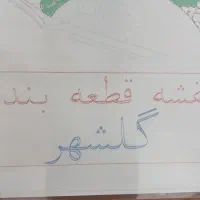 نقشه قطعه بند
گلشهر